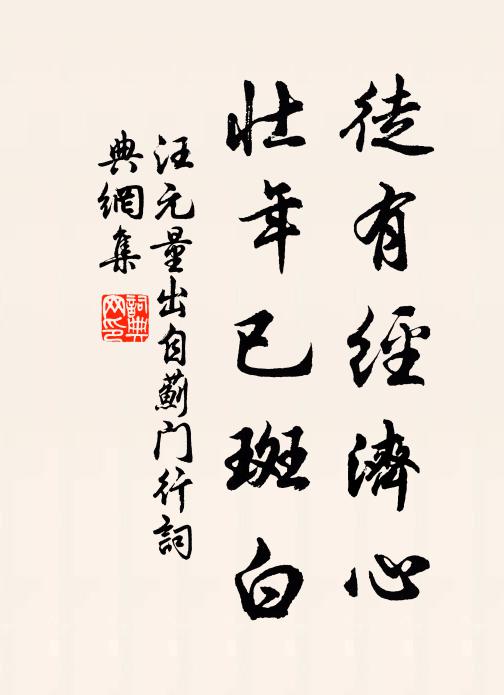 徒有經濟心
壯年已斑白
汪元量出自薊门行詞
典網集
詞典网印